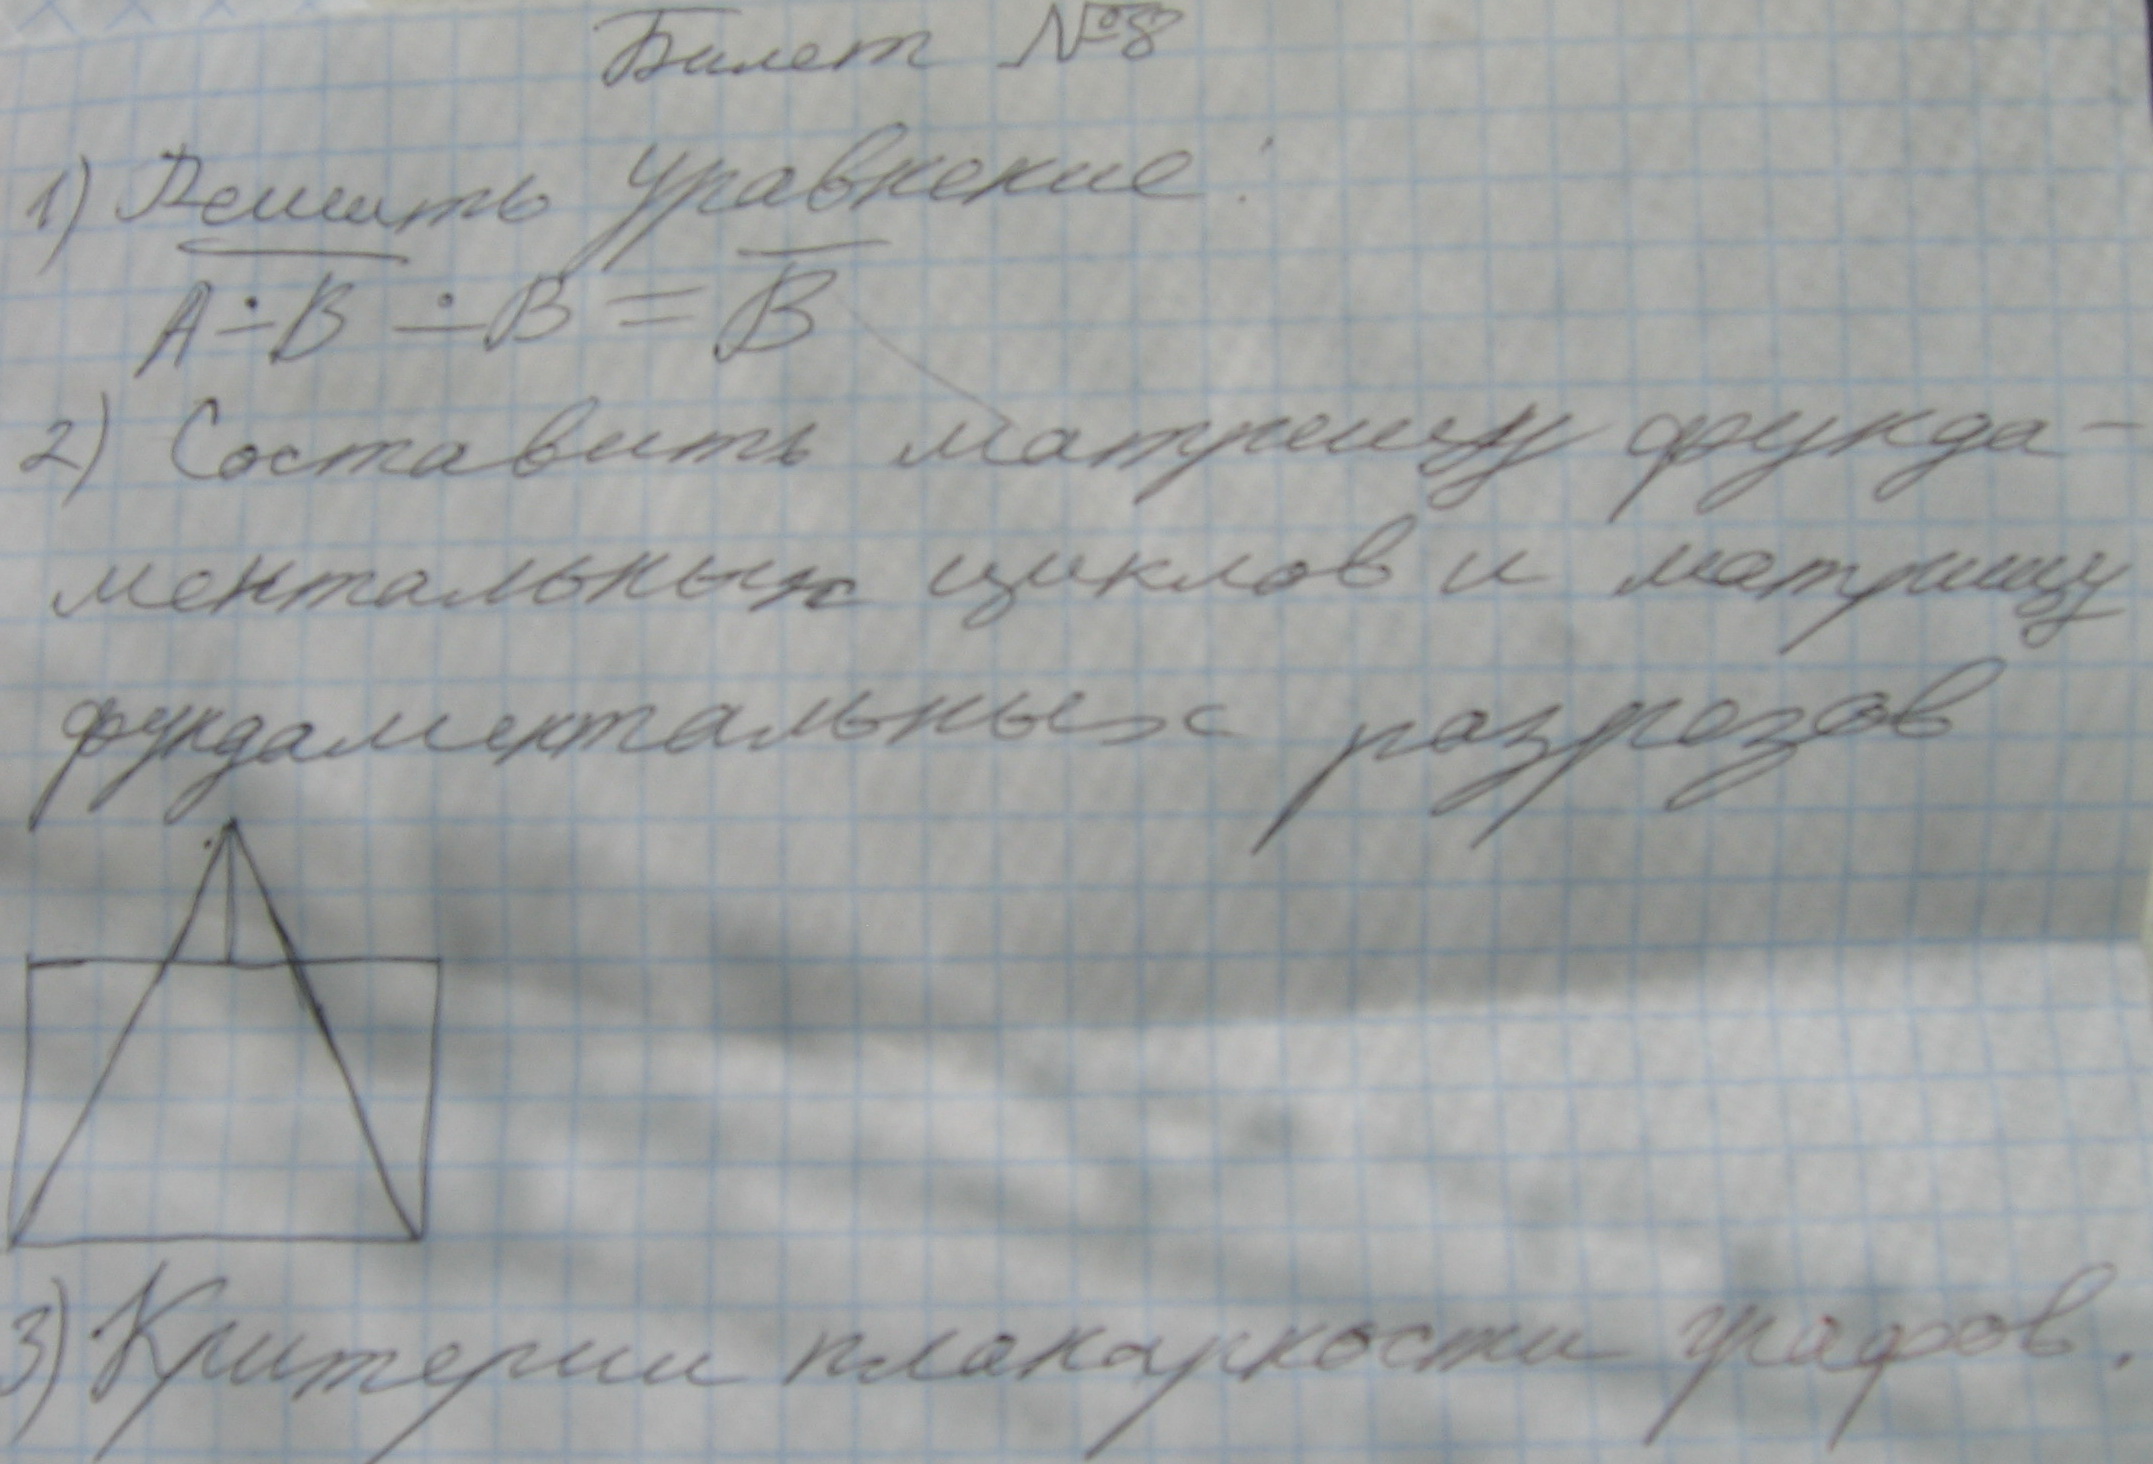 Билет №8
1) Решить уравнение:
A∸B ∸ B = B̅
2) Составить матрицу фунда-
ментальных циклов и матрицу
фундаментальных разрезов
3) Критерии планарности графов.